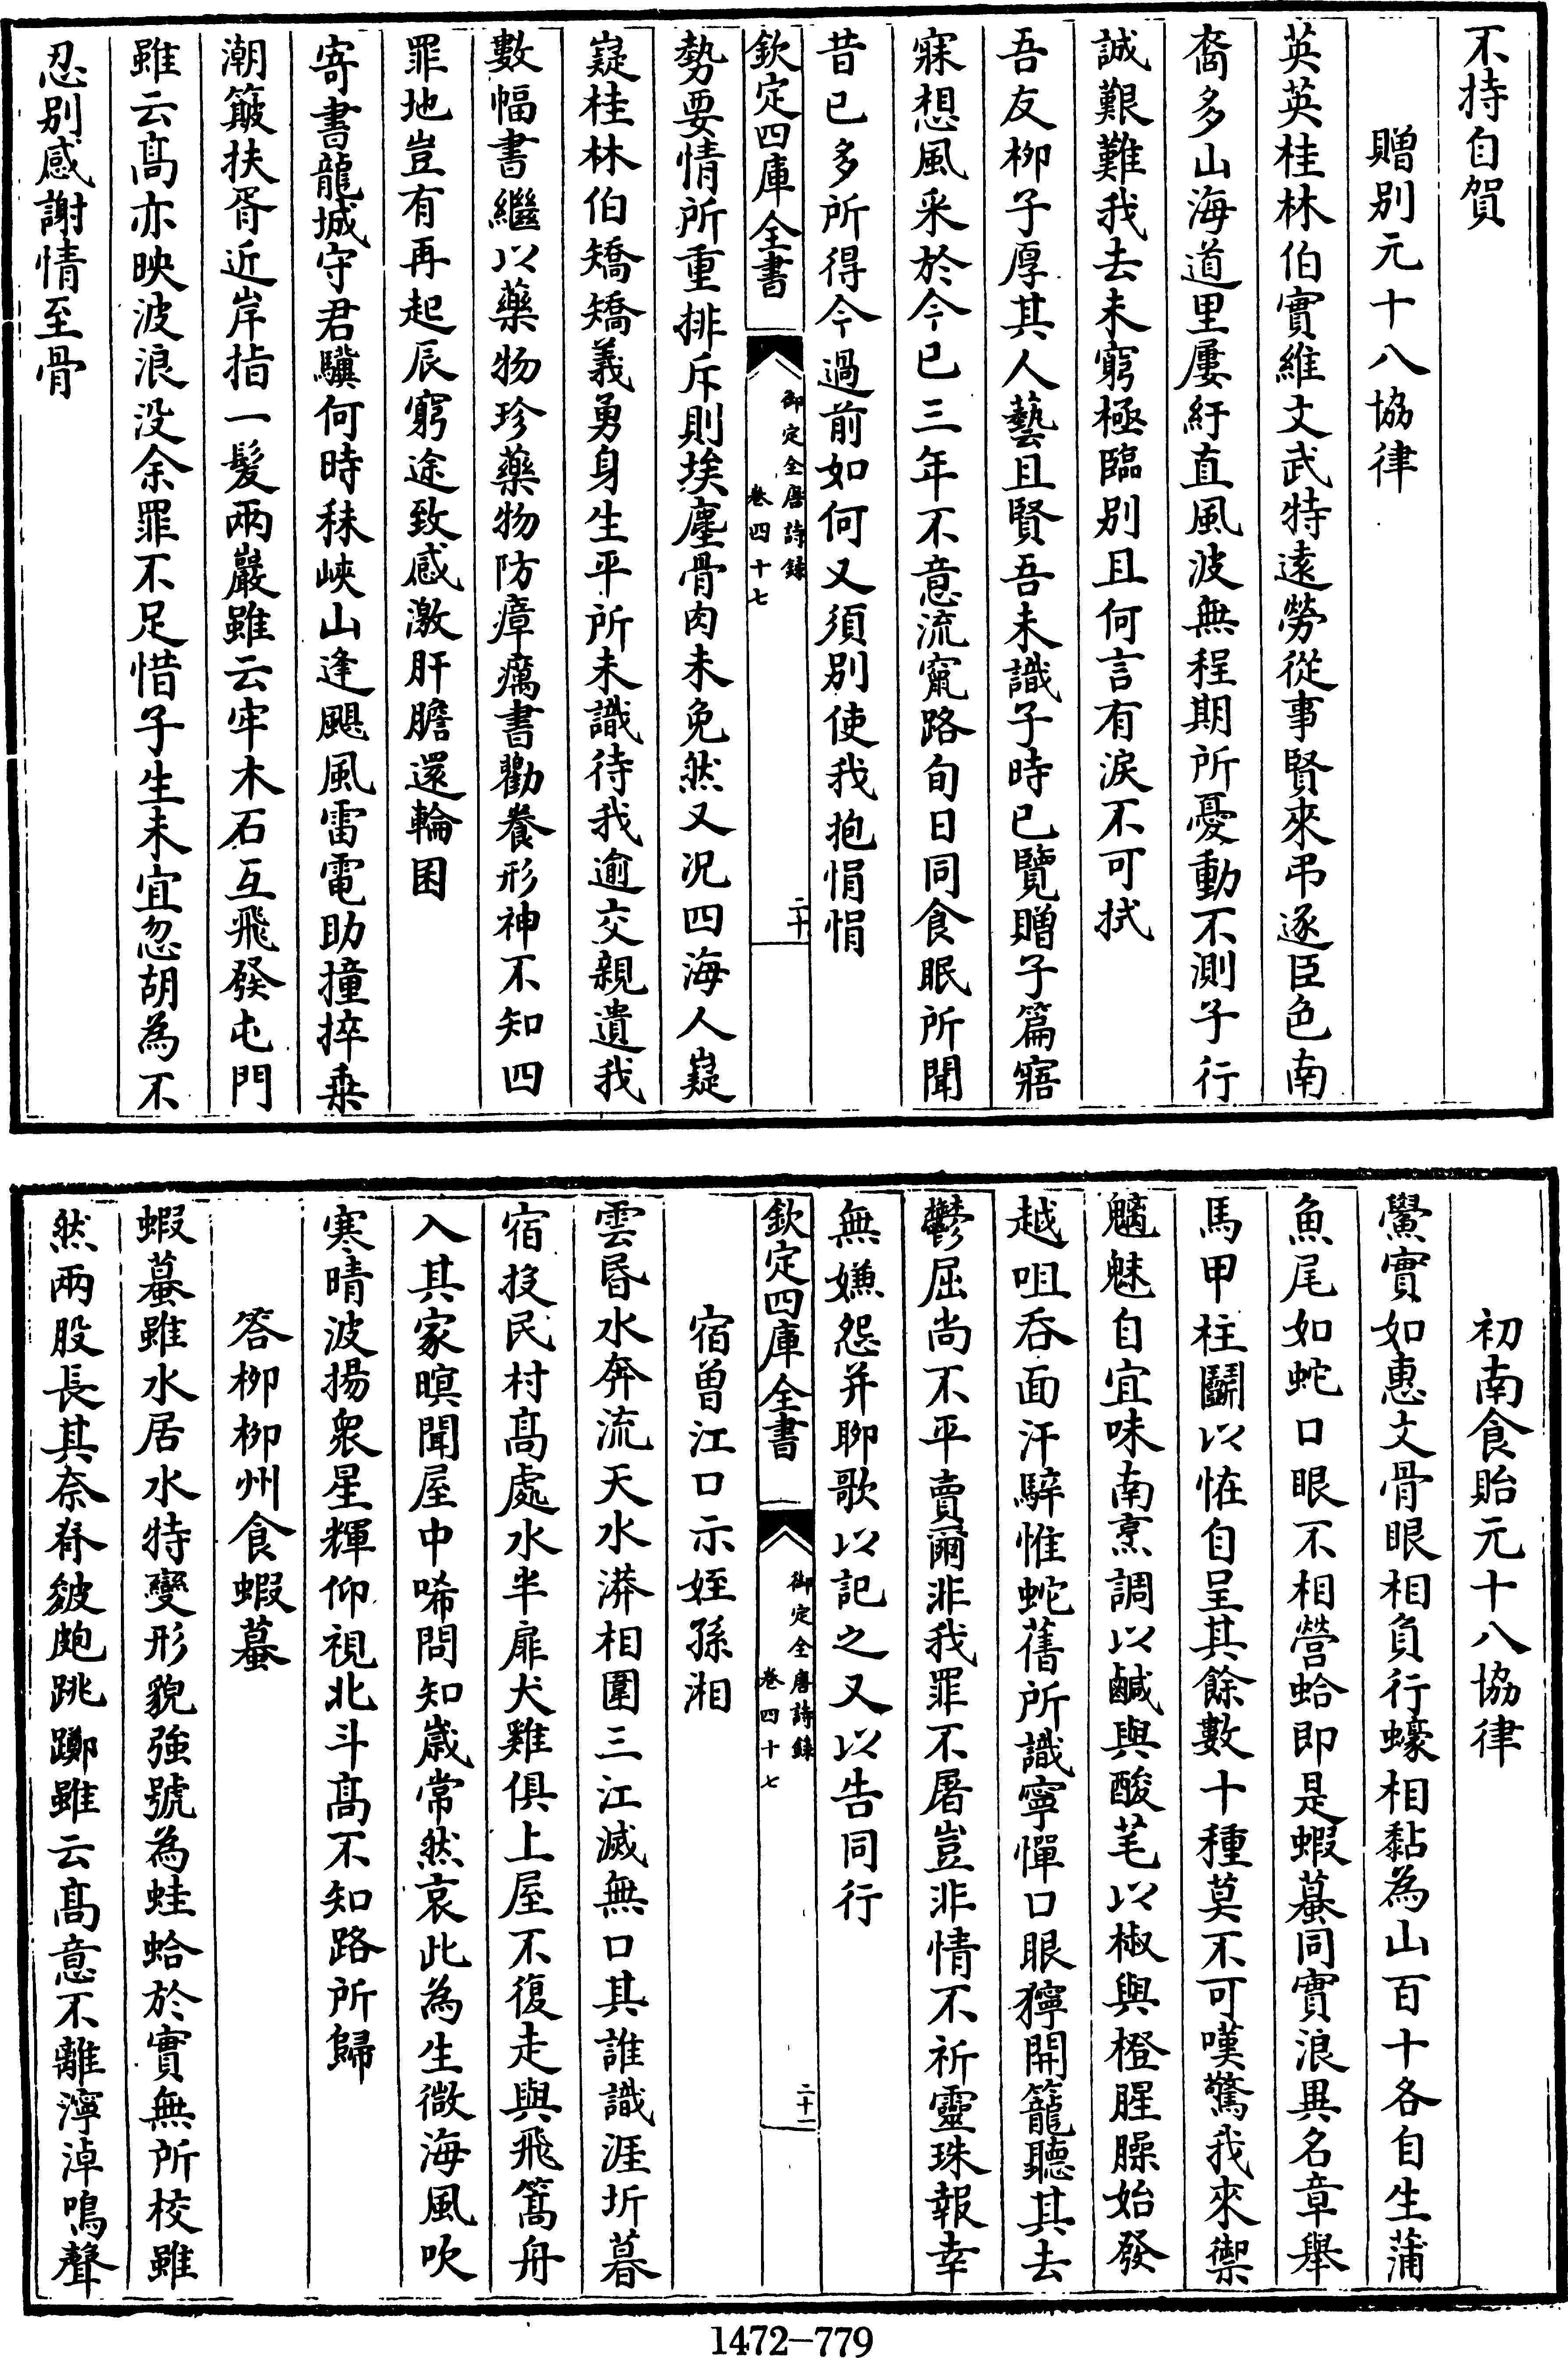 不持自賀
贈别元十八協律
英英桂林伯實維文武特遠勞從事賢來弔逐臣色南
裔多山海道里屢紆直風波無程期所憂動不測子行
誠艱難我去未窮極臨别且何言有淚不可拭
吾友柳子厚其人藝且賢吾未識子時已覽贈子篇寤
寐想風采於今已三年不意流竄路旬日同食眠所聞
昔已多所得今過前如何又須别使我抱悁悁
欽定四庫全書
御定全唐詩錄
卷四十七
二十
勢要情所重排斥則埃塵骨肉未免然又况四海人嶷
嶷桂林伯矯矯義勇身生平所未識待我逾交親遺我
數幅書繼以藥物珍藥物防瘴癘書勸養形神不知四
罪地豈有再起辰窮途致感激肝膽還輪囷
寄書龍城守君驥何時秣峽山逢颶風雷電助撞捽乗
潮簸扶胥近岸指一髮兩巖雖云牢木石互飛發屯門
雖云髙亦映波浪没余罪不足惜子生未宜忽胡為不
忍别感謝情至骨
初南食貽元十八協律
鱟實如惠文骨眼相負行蠔相黏為山百十各自生蒲
魚尾如蛇口眼不相營蛤即是蝦蟇同實浪異名章舉
馬甲柱鬬以怪自呈其餘數十種莫不可嘆驚我來禦
魑魅自宜味南烹調以鹹與酸芼以椒與橙腥臊始發
越咀吞面汗騂惟蛇舊所識寧憚口眼獰開籠聽其去
鬱屈尚不平賣爾非我罪不屠豈非情不祈靈珠報幸
無嫌怨并聊歌以記之又以告同行
欽定四庫全書
御定全唐詩錄
卷四十七
二十一
宿曽江口示姪孫湘
雲昏水奔流天水漭相圍三江滅無口其誰識涯圻暮
宿投民村髙處水半扉犬雞俱上屋不復走與飛篙舟
入其家暝聞屋中唏問知嵗常然哀此為生微海風吹
寒晴波揚衆星輝仰視北斗髙不知路所歸
答柳柳州食蝦蟇
蝦蟇雖水居水特變形貌強號為蛙蛤於實無所校雖
然兩股長其奈脊皴皰跳躑雖云髙意不離濘淖鳴聲
1472-779